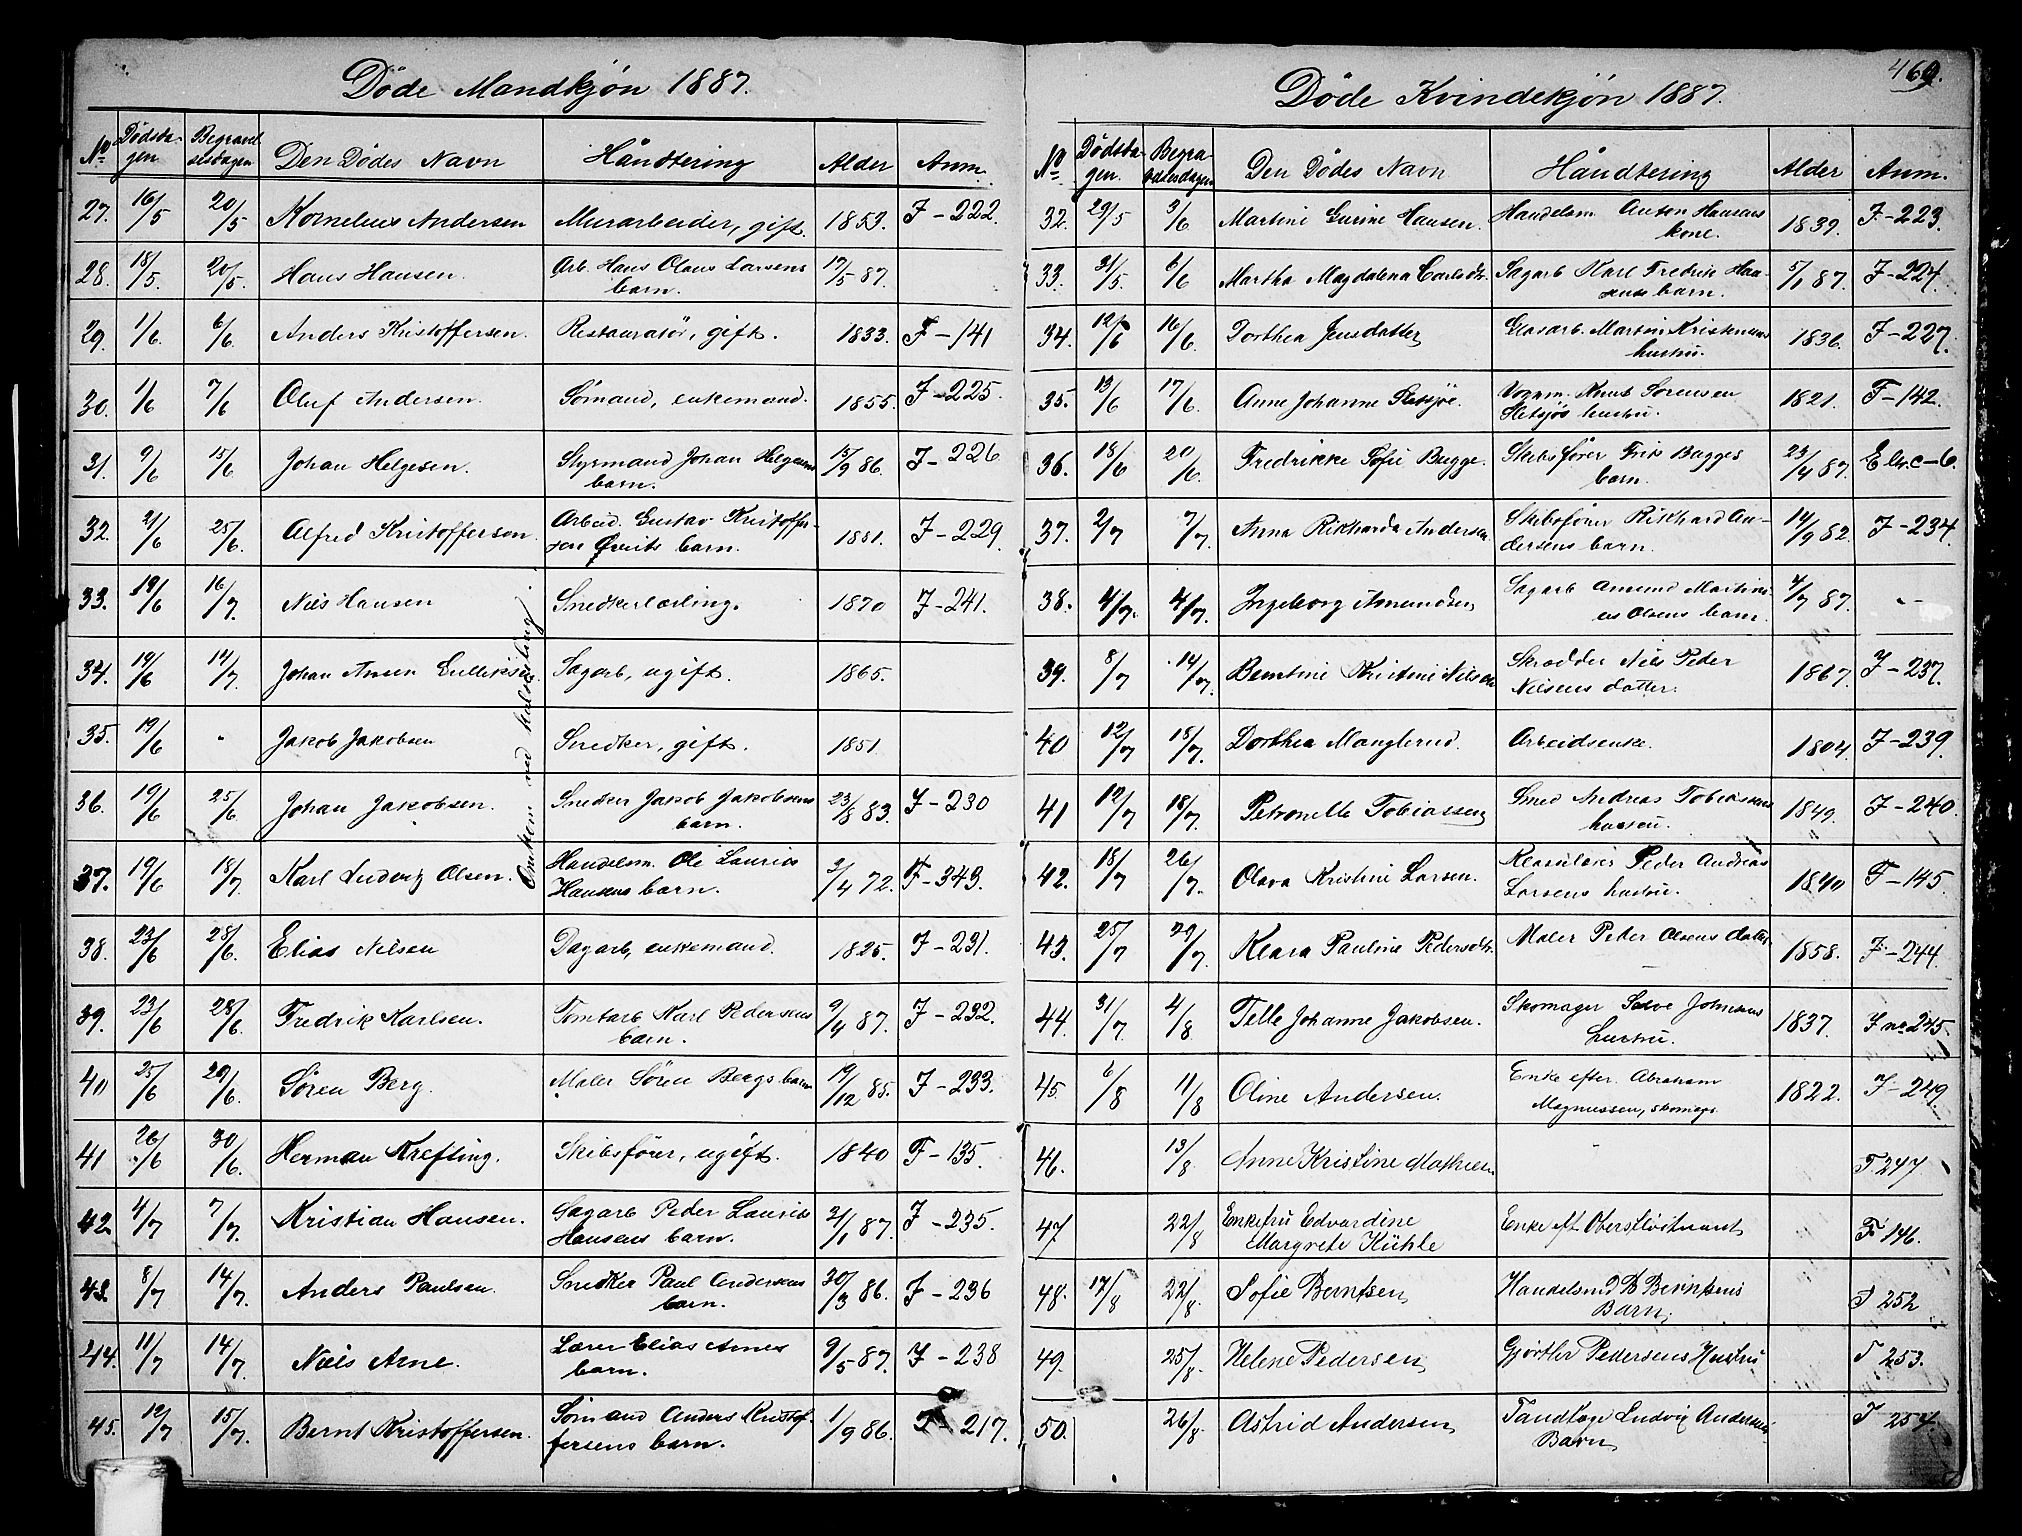 Döde Mandkjön 1887.
No Dödsdagen Begravelsesdagen Den Dödes Navn Håndtering Alder Anm.
27. 16/5 20/5 Kornelius Andersen Murarbeider, gift. 1853. J-222.
28. 18/5. 20/5. Hans Hansen. Arb. Hans Olaus Larsens barn. 17/5 87.
29. 1/6. 6/6. Anders Kristoffersen. Restauratör, gift. 1833. F-141
30. 1/6 7/6 Oluf Andersen. Sömand, enkemand. 1855. J-225.
31. 9/6 15/6. Johan Helgesen. Styrmand Johan Helgesens barn. 15/9 86. J-226
32. 21/6 25/6. Alfred Kristoffersen Arbeid. Gustav Kristoffersen barn. 1881. J-229.
33. 19/6 16/7. Niels Hansen Snedkerlærling. 1870 J-241.
34. 19/6 14/7. Johan Ansen Sagarb, ugift. 1865.
35. 19/6 " Jakob Jakobsen Snedker, gift. 1851
36. 19/6 25/6. Johan Jakobsen. Snedker Jakob Jakobsens barn. 23/8 83. J-230
37. 19/6 18/7. Karl Ludvig Olsen. Handelsm. Ole Laurits Hansens barn. 3/4 72. F-343.
Omkom ved kulseiling
38. 23/6 28/6. Elias Nilsen Dagarb, enkemand. 1825. J-231.
39. 23/6 28/6. Fredrik Karlsen. Tomtarb Karl Pedersens barn. 9/4 87. J-232.
40 25/6 29/6. Sören Berg. Maler Sören Bergs barn 19/12 85. J-233.
41 26/6 30/6. Herman Krefting. Skibsförer, ugift. 1840 F-135.
42 4/7 7/7. Kristian Hansen. Sagarb Peder Laurits Hansens barn. 21/1 87. J-235.
43. 8/7 14/7. Anders Paulsen. Snedker Paul Andersens barn. 30/3 86. J-236
44. 11/7 14/7. Niels Arne. Lærer Elias Arnes barn. 9/5 87. J-238
45. 12/7 15/7. Bernt Kristoffersen. Sömand Anders Kristoffersens barn. 1/9 86. J-217.
469.
Döde Kvindekjön 1887.
No Dödsdagen. Begravelsesdagen Den Dödes Navn Håndtering Alder Anm.
32. 29/5 3/6 Martine Gurine Hansen. Handelsm Anton Hansens kone. 1839. J-223.
33. 31/5. 6/6 Martha Magdalena Carlsdtr. Sagarb Karl Fredrik Hansens barn. 5/1 87. J-224.
34. 12/6 16/6. Dorthea Jensdatter Glasarb. Martin Kristensens hustru. 1836. J-227.
35. 13/6 17/6. Anne Johanne Sletsjöe. Vognm. Knut Sörensen Sletsjös hustru. 1821. F-142.
36. 18/6 20/6. Fredrikke Sofie Bugge. Skibsförer Erik Bugges barn. 23/4 87. E litr. c-6.
37. 2/7 7/7. Anna Rikharda Andersen Skibsförer Rikhard Andersens barn. 14/9 82. J-234.
38. 4/7. 4/7. Ingeborg Amundsen Sagarb Amund Martinius Olsens barn. 4/7 87. "
39. 8/7 14/7. Berntine Kristine Nilsen Skrædder Nils Peder Nilsens datter. 1867. J-237.
40 12/7 18/7. Dorthea Manglerud. Arbeidsenke. 1804. J-239.
41 12/7 18/7. Petronelle Tobiassen Smed Andreas Tobiassens hustru. 1849. J-240.
42. 18/7 26/7. Olava Kristine Larsen. Peder Andreas Larsens hustru. 1840 F-145.
43. 25/7 29/7. Klara Pauline Pedersdtr. Maler Peder Olsens datter 1858. J-244.
44. 31/7. 4/8 Telle Johanne Jakobsen. Skomager Salve Johnsens hustru. 1837. J no 245.
45. 6/8 11/8 Oline Andersen. Enke efter. Abraham Magnussen, skomager 1822. J-249
46. 13/8. Anne Kristine Mathisen J 247
47 22/8 Enkefru Edvardine Margrete Kühle Enke eft Oberstlöitnant F 146.
48. 17/8 22/8. Sofie Berntsen, Handelsmd B Berntsens Barn, J 252
49. 25/8. Helene Pedersen, Gjörtler Pedersens Hustru J 253.
50. 26/8. Astrid Andersen, Tandlæge Ludvig Andersens Barn, J 254.